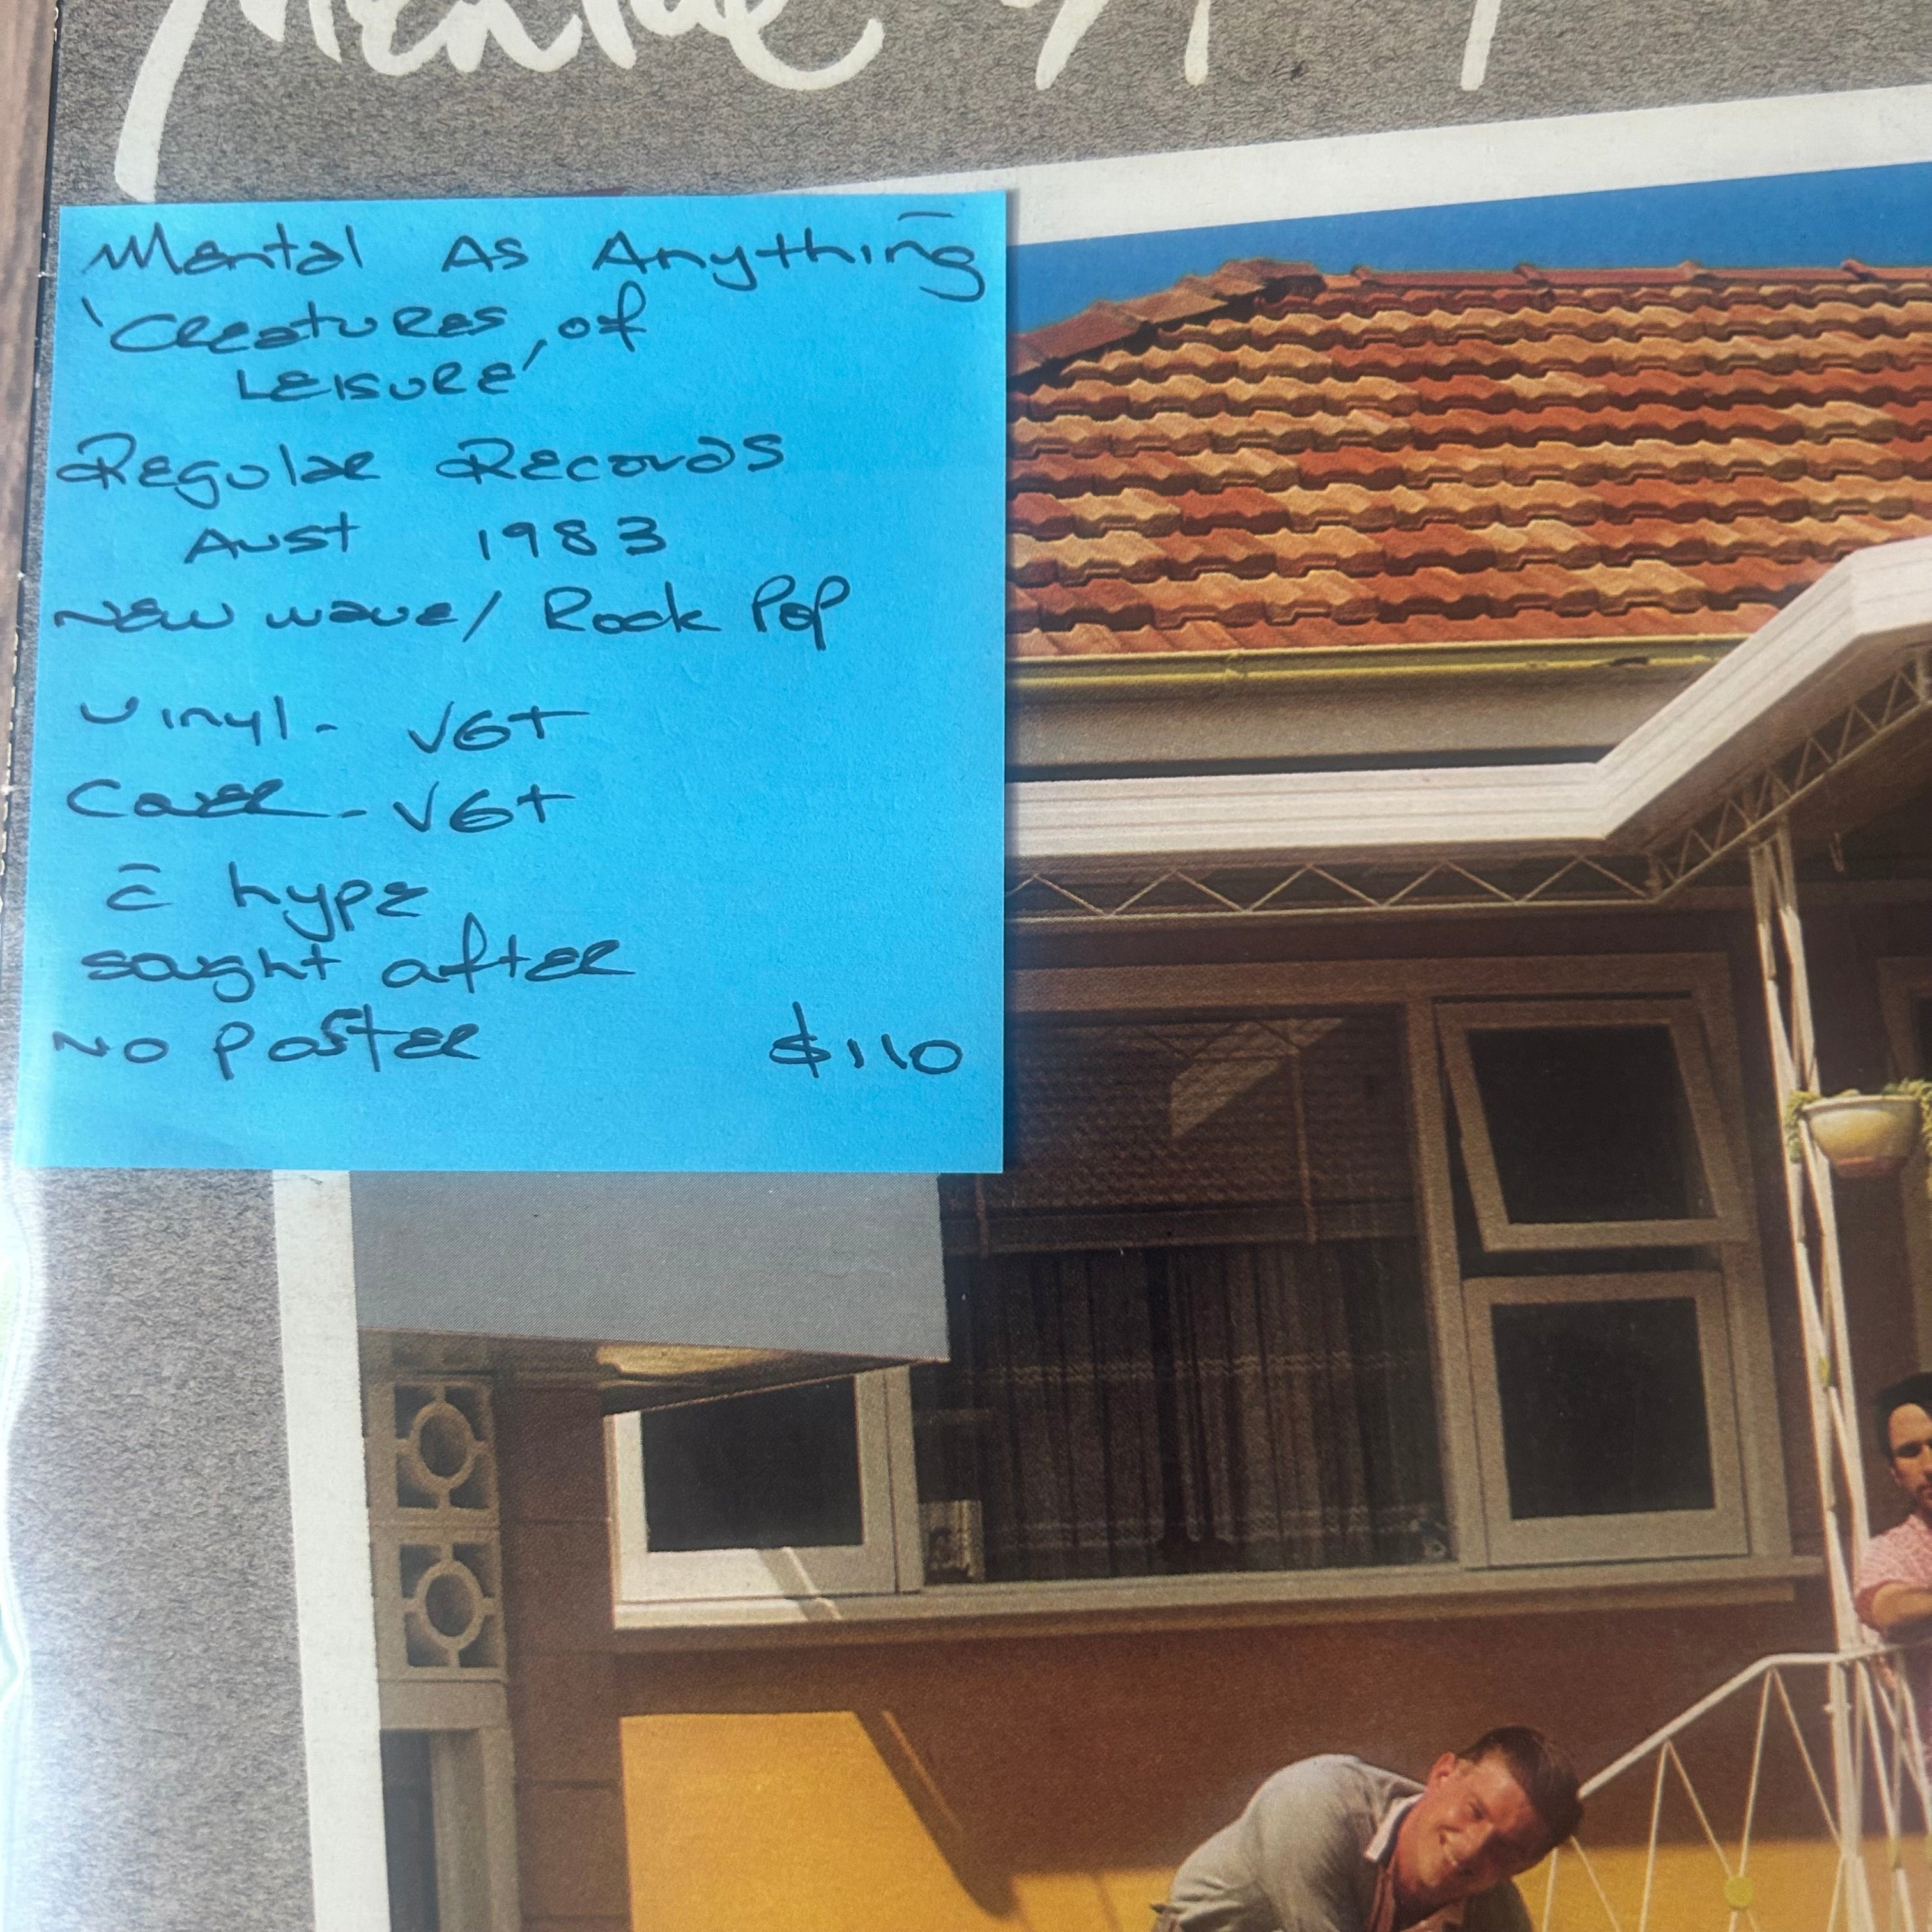 Mental
Mental As Anything
'Creatures of
Leisure'
Regular Records
Aust 1983
New wave / Rock Pop
Vinyl - VG+
Cover - VG+
c̄ hype
sought after
No poster $110